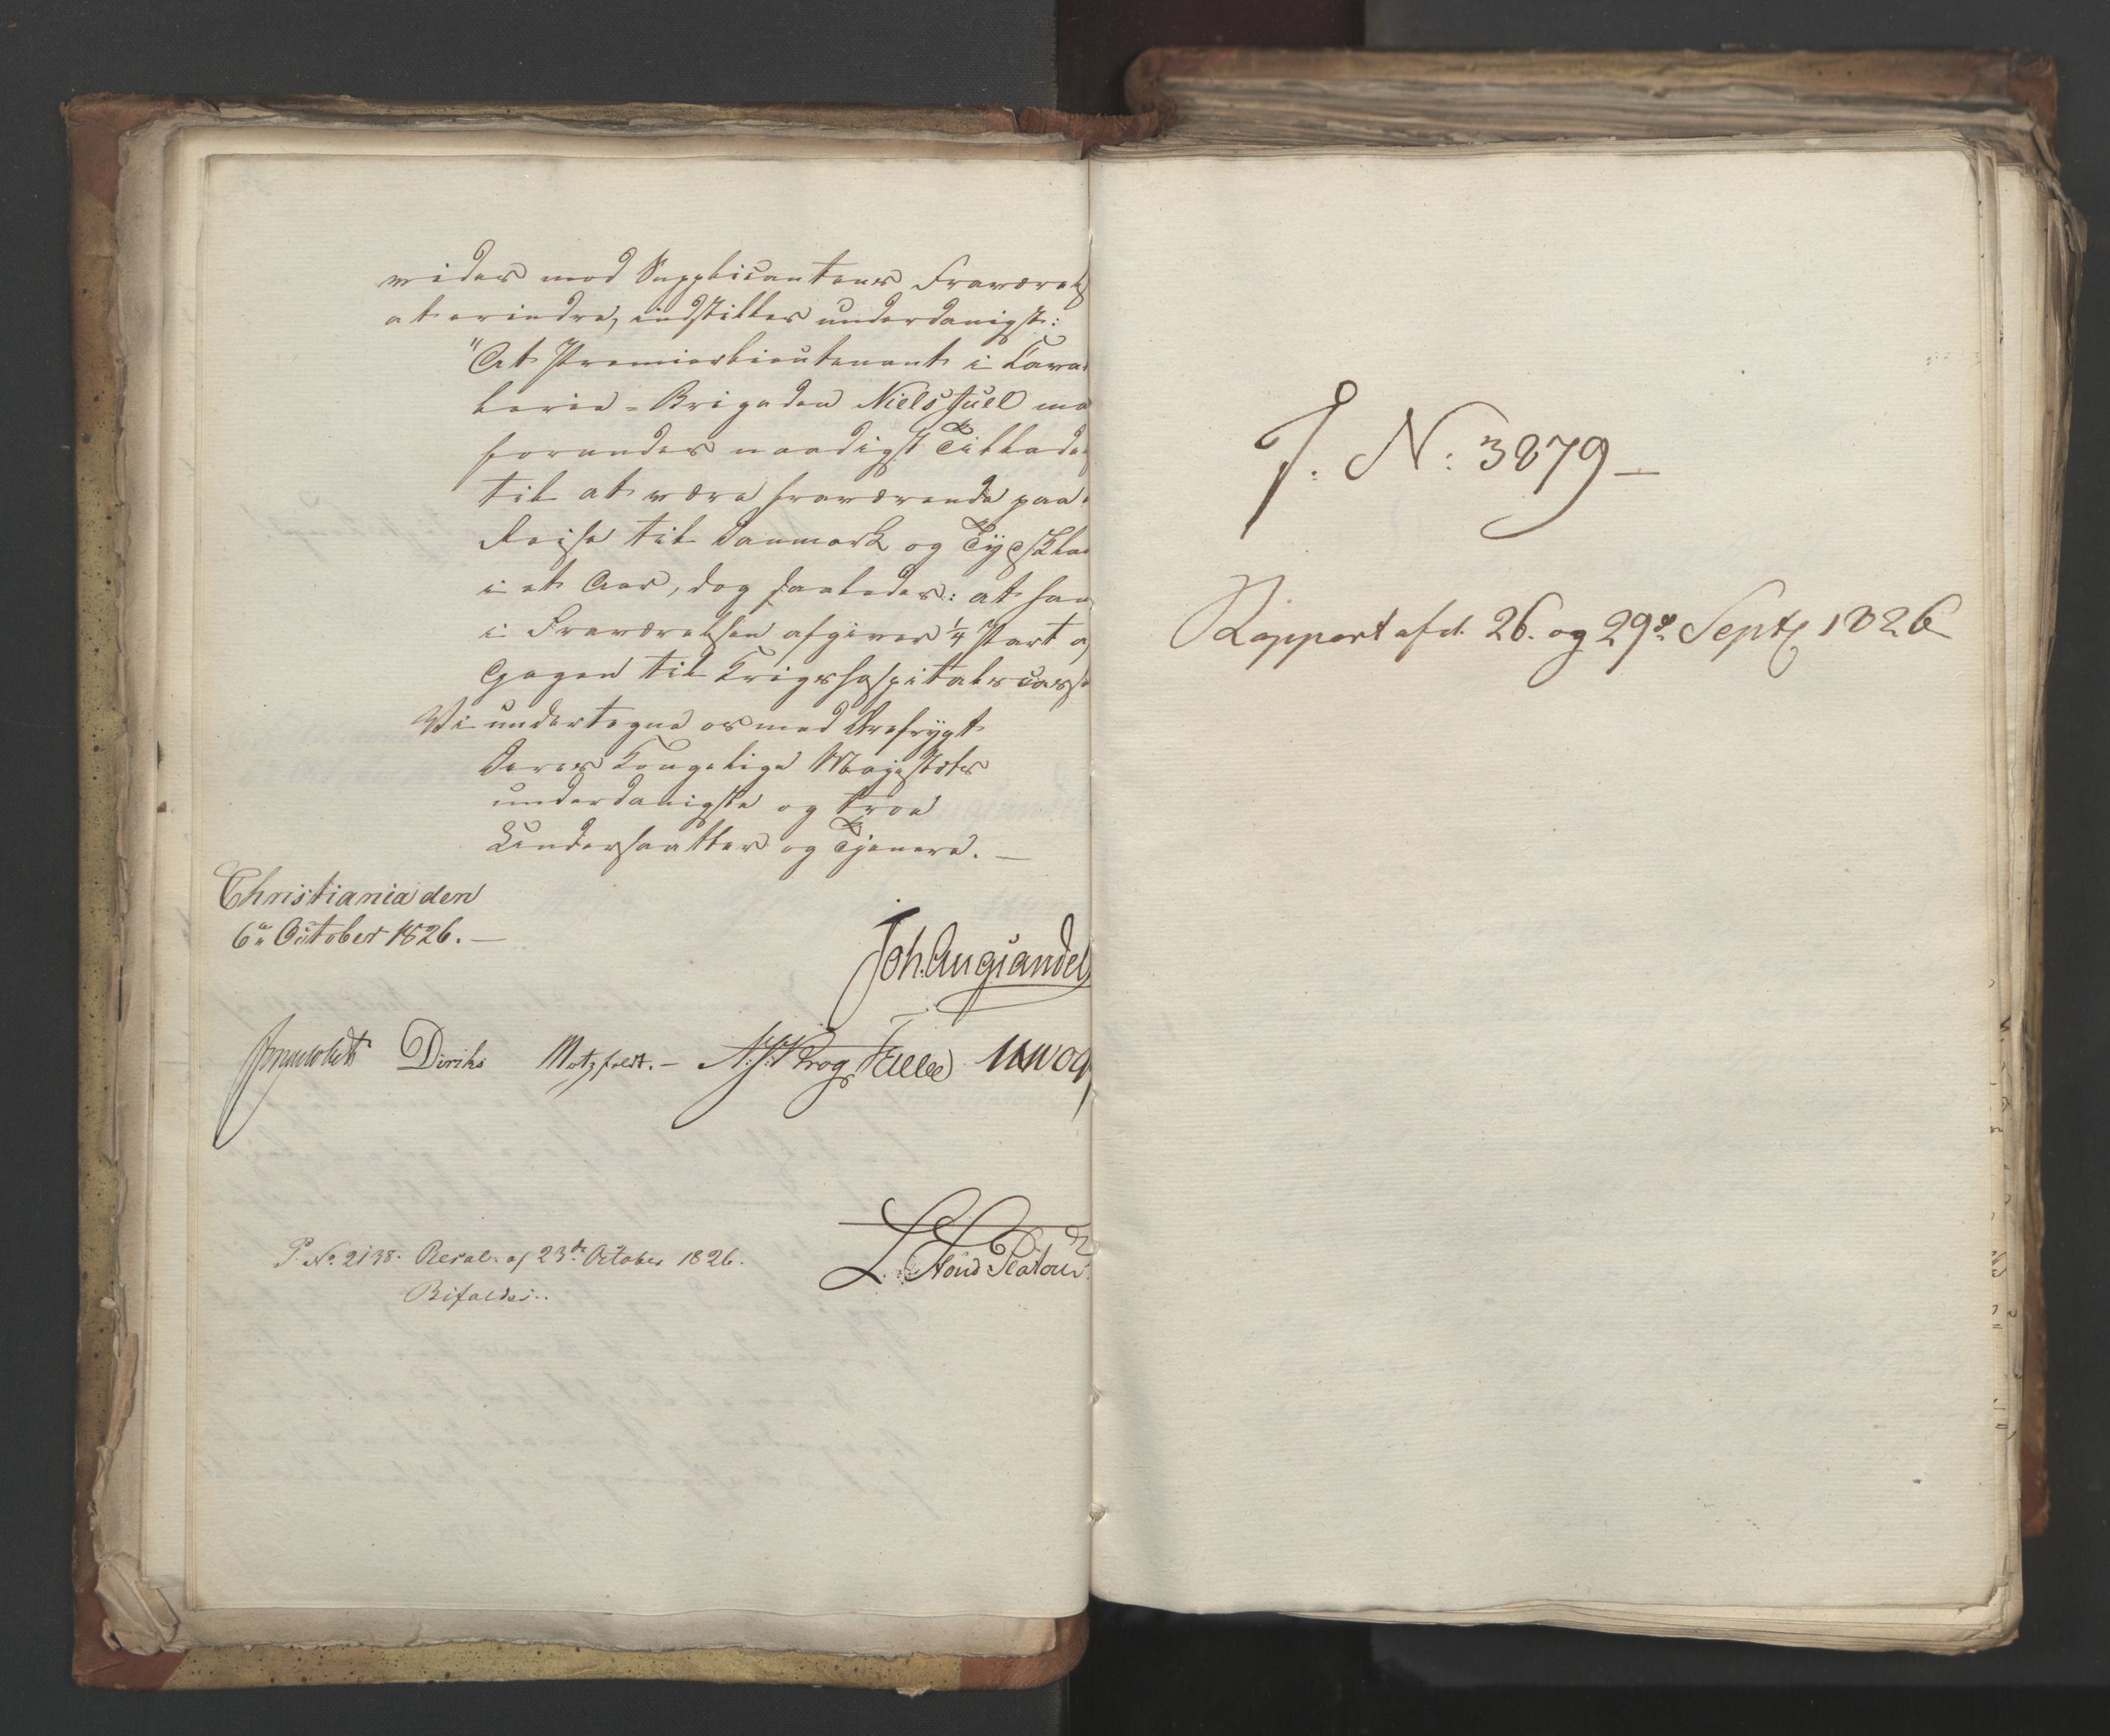 vider mod Supplicantens Fraværels
at erindre, indstilles underdanigst:
"At Premierlieutenant i Caval
lerie-Brigaden Niels Juel maa
forundes naadigst Tilladel
til at være fraværende paa
Reise til Danmark og Tydskla
i et Aar, dog saaledes: at han
i Fraværelsen afgiver 1/4 Part af
Gagen til Krigshospitalscasse
Vi undertegne os med Ærefrygt
Deres Kongelige Majestæts
underdanigste og troe
Undersaatter og Tjenere. —
Christiania den
6te October 1826. —
Joh. Aug. Sandel
Diriks Motzfeldt. — Krog
P. No. 2138. Resol. af 23de October 1826.
Bifaldes.
J. N: 3879 —
Rapport af d. 26. og 29de Septr 1826